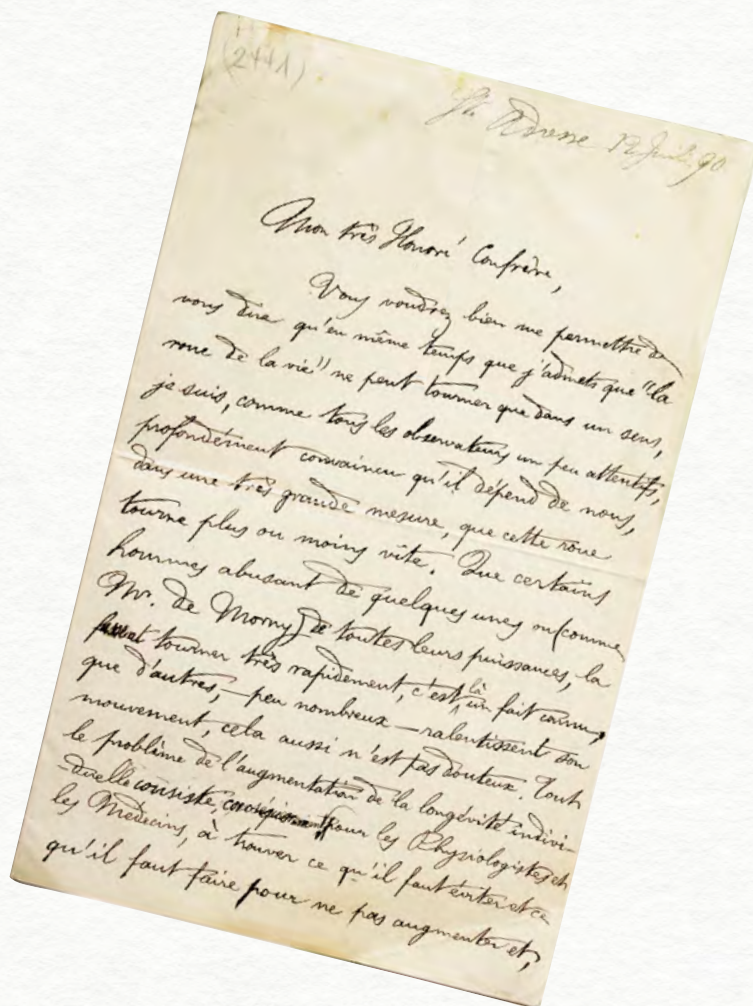 (2441)
Ste Adresse 12 Juil. 90
Mon très Honoré Confrère,
Vous voudrez bien me permettre de
vous dire qu'en même temps que j'admets que "la
roue de la vie" ne peut tourner que dans un sens,
je suis, comme tous les observateurs un peu attentifs,
profondément convaincu qu'il dépend de nous,
dans une très grande mesure, que cette roue
tourne plus ou moins vite. Que certains
hommes abusant de quelques unes ou (comme
Mr. de Morny) de toutes leurs puissances, la
tourner très rapidement, c'est là un fait connu,
que d'autres, — peu nombreux — ralentissent son
mouvement, cela aussi n'est pas douteux. Tout
le problème de l'augmentation de la longévité indivi-
-duelle consiste, pour les Physiologistes et
les Médecins, à trouver ce qu'il faut éviter et ce
qu'il faut faire pour ne pas augmenter et,